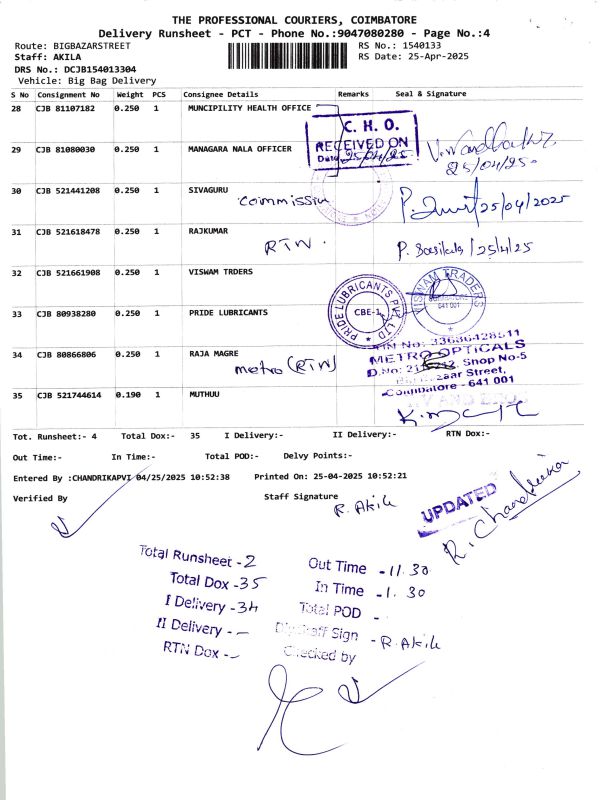 THE PROFESSIONAL COURIERS, COIMBATORE
Delivery Runsheet - PCT - Phone No.:9047080280 - Page No.:4
Route: BIGBAZARSTREET
RS No.: 1540133
Staff: AKILA
RS Date: 25-Apr-2025
DRS No.: DCJB154013304
Vehicle: Big Bag Delivery
S No Consignment No Weight PCS Consignee Details Remarks Seal & Signature
28 CJB 81107182 0.250 1 MUNCIPILITY HEALTH OFFICE
C. H. O.
RECEIVED ON
Date 25/04/25
29 CJB 81080030 0.250 1 MANAGARA NALA OFFICER
25/04/25
30 CJB 521441208 0.250 1 SIVAGURU
25/04/2025
31 CJB 521618478 0.250 1 RAJKUMAR
RTN. 25/4/25
32 CJB 521661908 0.250 1 VISWAM TRDERS
VISWAM TRADERS
641 001
33 CJB 80938280 0.250 1 PRIDE LUBRICANTS
PRIDE LUBRICANTS PVT LTD
CBE-1
34 CJB 80866806 0.250 1 RAJA MAGRE
metro (RTN)
METRO OPTICALS
Shop No-5
Street,
Coimbatore - 641 001
35 CJB 521744614 0.190 1 MUTHUU
Tot. Runsheet:- 4 Total Dox:- 35 I Delivery:- II Delivery:- RTN Dox:-
Out Time:- In Time:- Total POD:- Delvy Points:-
Entered By :CHANDRIKAPVI 04/25/2025 10:52:38 Printed On: 25-04-2025 10:52:21
Verified By Staff Signature
R. Akila
UPDATED
R. Chandrika
Total Runsheet - 2 Out Time - 11.30
Total Dox - 35 In Time - 1.30
I Delivery - 34 Total POD -
II Delivery - - Sign - R. Akila
RTN Dox - - Checked by